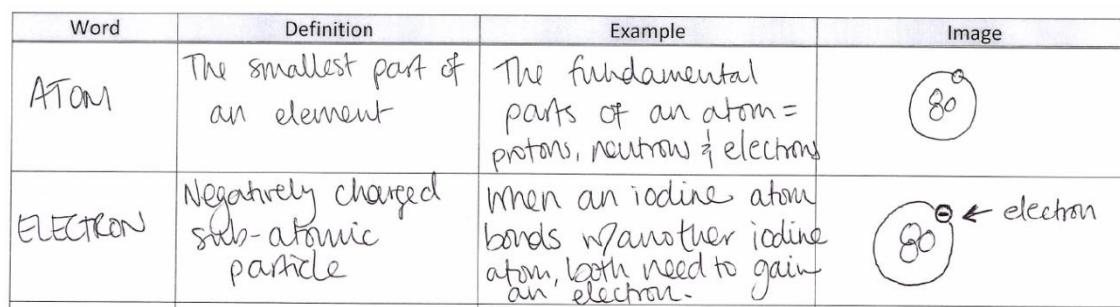 Word Definition Example Image
ATOM
The smallest part of
an element
The fundamental
parts of an atom =
protons, neutrons & electrons
ELECTRON
Negatively charged
sub-atomic
particle
When an iodine atom
bonds w/another iodine
atom, both need to gain
an electron.
← electron